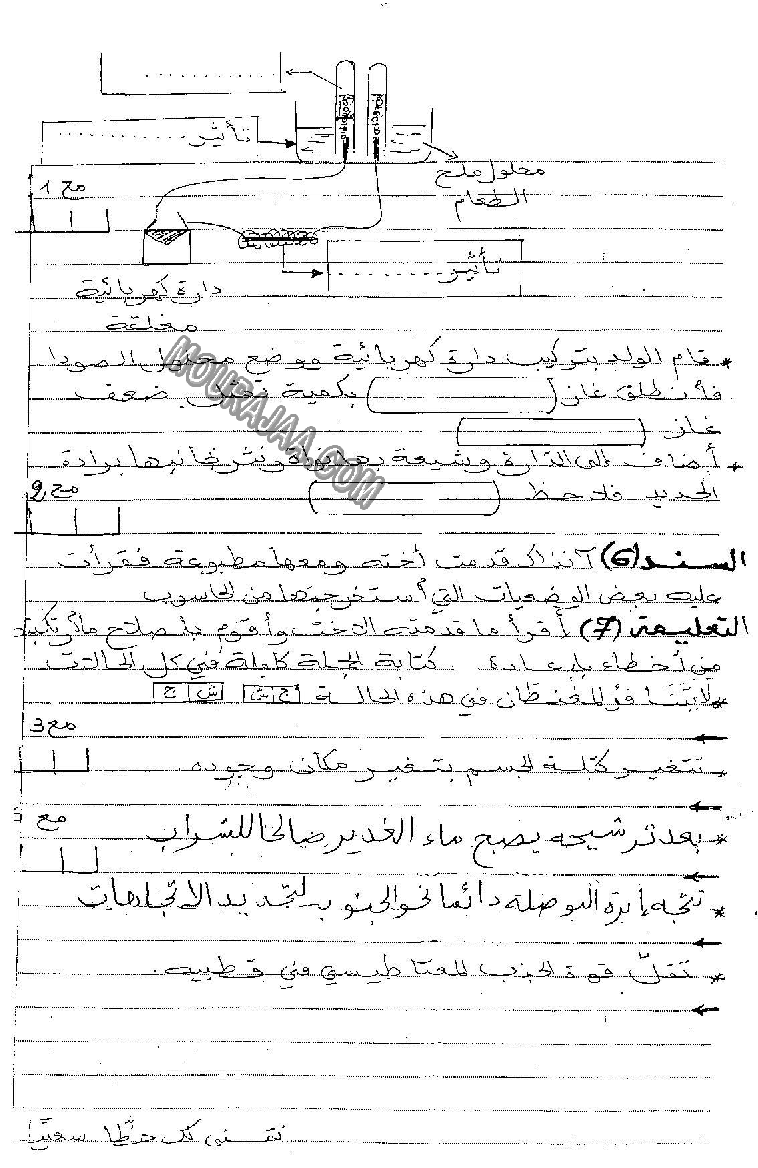 ............
تأثير ............
محلول ملح
الطعام
مع 1
تأثير ............
دارة كهربائية
مغلقة
* قام الولد بتركيب دارة كهربائية ووضع محلول الصودا
فأنطلق غاز ( ) بكمية تمثل ضعف
غاز ( )
* أضاف إلى الدارة وشيعة بها نواة ونثر بجانبها برادة
الحديد فلاحظ ( )
مع 2
السند (6) آنذاك قدمت أخته ومعها مطبوعة فقرأت
عليه بعض الوضعيات التي أستخرجتها من الحاسوب
التعليمة (7) أقرأ ما قدمته الاخت وأقوم بإصلاح ما
من أخطاء بإعادة كتابة الجملة كاملة في كل الحالات
* لا يتنافر المغنطان في هذه الحالة ج ش ش ج
مع 3
- تتغير كتلة الجسم بتغير مكان وجوده
مع
* بعد ترشيحه يصبح ماء الغدير صالحا للشراب
* تتجه إبرة البوصلة دائما نحو الجنوب لتحديد الاتجاهات
* تقلّ قوة الجذب المغناطيسي في قطبيه.
نتمنى لك حظّا سعيدا
MOURAJAA.COM